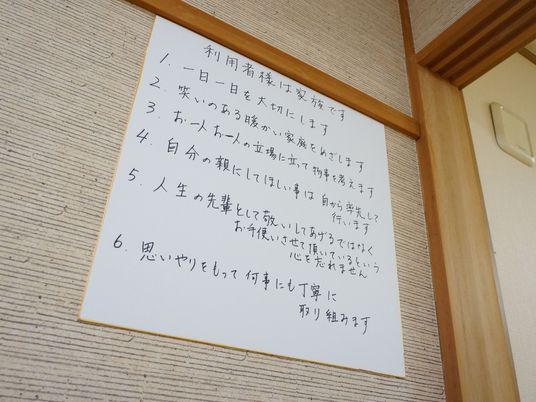 利用者様は家族です
1. 一日一日を大切にします
2. 笑いのある暖かい家庭をめざします
3. お一人お一人の立場に立って物事を考えます
4. 自分の親にしてほしい事は 自から率先して
行います
5. 人生の先輩として敬いしてあげるではなく
お手使いさせて頂いているという
心を忘れません
6. 思いやりをもって何事にも丁寧に
取り組みます